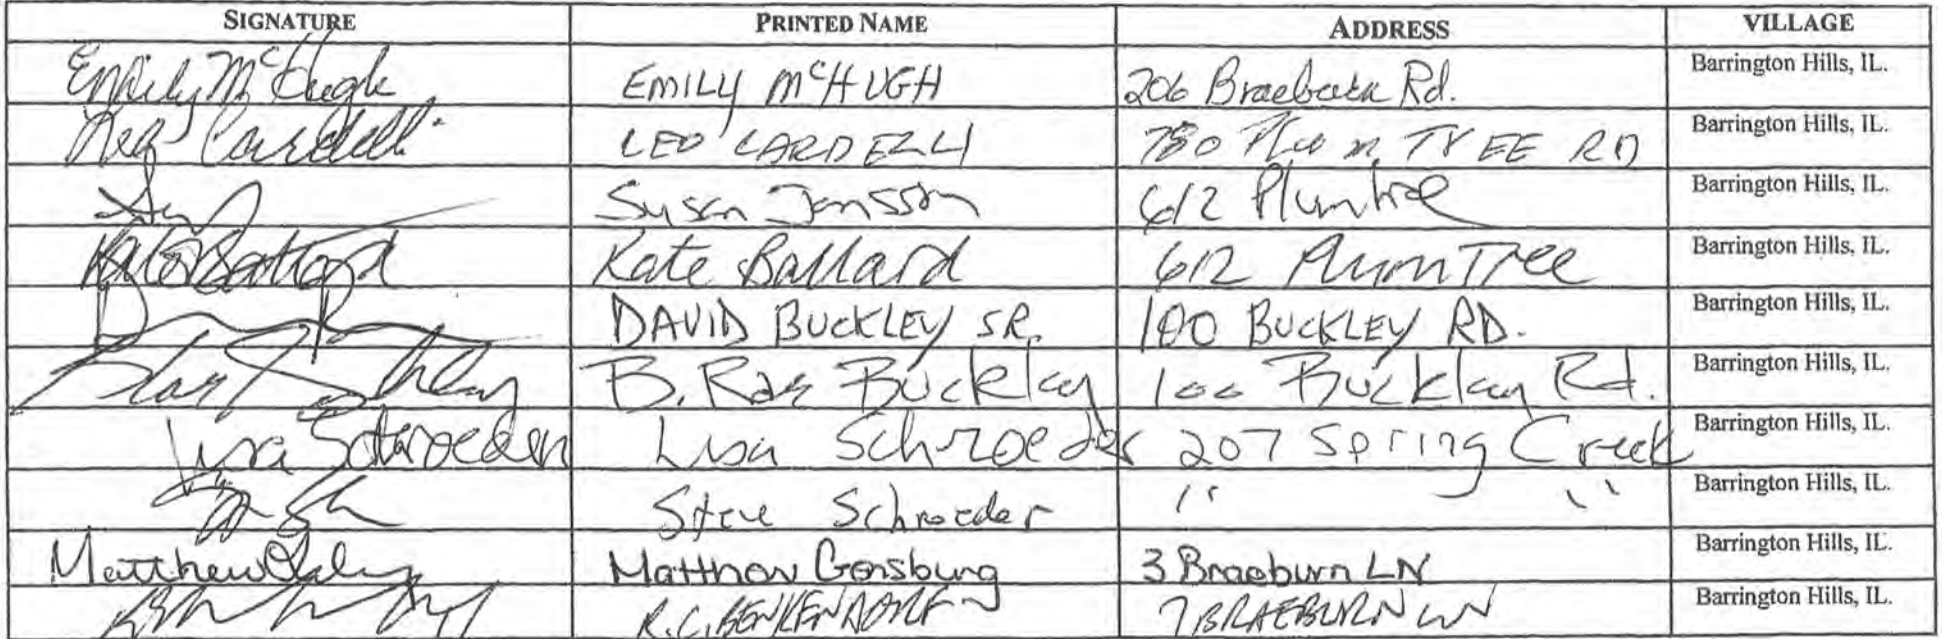 SIGNATURE PRINTED NAME ADDRESS VILLAGE
Emily McHugh EMILY McHUGH 206 Rd. Barrington Hills, IL.
Leo Cardelli LEO CARDELLI 780 Plum TREE RD Barrington Hills, IL.
Susan Jansson 612 Plumtree Barrington Hills, IL.
Kate Ballard Kate Ballard 612 PlumTree Barrington Hills, IL.
DAVID BUCKLEY SR. 100 BUCKLEY RD. Barrington Hills, IL.
B. Ray Buckley 100 Buckley Rd. Barrington Hills, IL.
Lisa Schroeder Lisa Schroeder 207 Spring Creek Barrington Hills, IL.
Steve Schroeder " " Barrington Hills, IL.
Matthew Matthew Gensburg 3 Braeburn LN Barrington Hills, IL.
R.C. BENKENDORF 7 BRAEBURN LN Barrington Hills, IL.